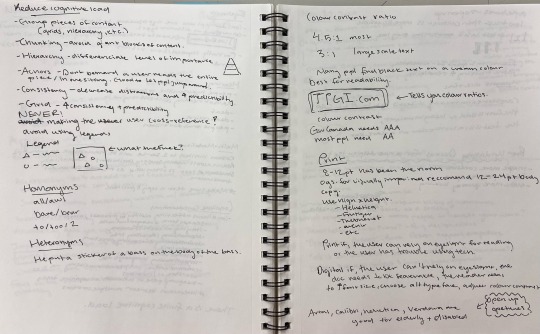 Reduce cognitive load
- Group pieces of content
(grids, hierarchy, etc.)
- Chunking - avoid giant blocks of content.
- Hierarchy - differenciate level of importance
- Dont demand a user reads the entire
- Consistency - decrease distractions and ↑ predictibility
- Grid - ↑ consistency + predictibility
NEVER!
making the user cross-reference?
avoid using legends
Legend
← what the fuck?
Homonyms
all/awl
bare/bear
to/too/2
Heteronyms
He put a sticker of a bass on the body of the bass.
Colour contrast ratio
4.5:1 most
3:1 large scale text
Many ppl find black text on a cream colour
best for readability.
TPGI.com ← Tells you colour ratios.
colour contrast
Gov Canada needs AAA
most ppl need AA
Print
8-12pt has been the norm
orgs for visually impaired reccomend 12-24pt body
copy.
use high x height.
- Helvetica
- Frutiger
- avenir
- etc
Print if the user can rely on eyesight for reading
or the user has trouble using tech
Digital if the user can't rely on eyesight, the
doc needs
to ↑ font size, choose alt typeface, adjust colour contrast
Arial, Calibri, Helvetica, Verdana are
good for elderly + disabled
open up
apertures